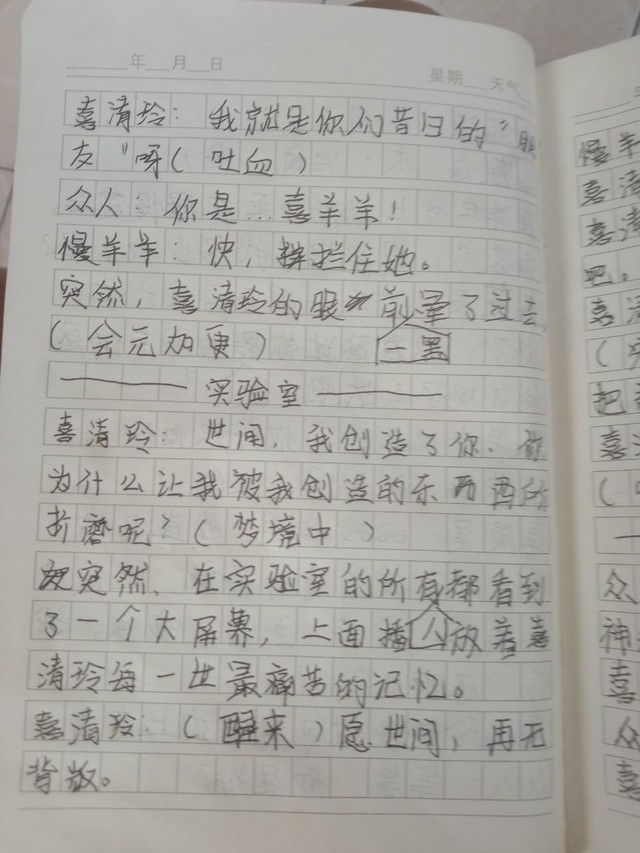 年 月 日
星期 天气
喜清玲：我就是你们昔日的"朋
友"呀（吐血）
众人：你是…喜羊羊！
慢羊羊：快，拦住她。
突然，喜清玲的眼前一黑晕了过去
（会元加更）
———— 实验室 ————
喜清玲：世间，我创造了你、
为什么让我被我创造的东西所
折磨呢？（梦境中）
突然、在实验室的所有人都看到
了一个大屏幕，上面播放着喜
清玲每一世最痛苦的记忆。
喜清玲：（醒来）愿世间，再无
背叛。
慢羊
喜清
喜清
吧。
喜清
（
把
喜清
（
众
神
喜
众
喜